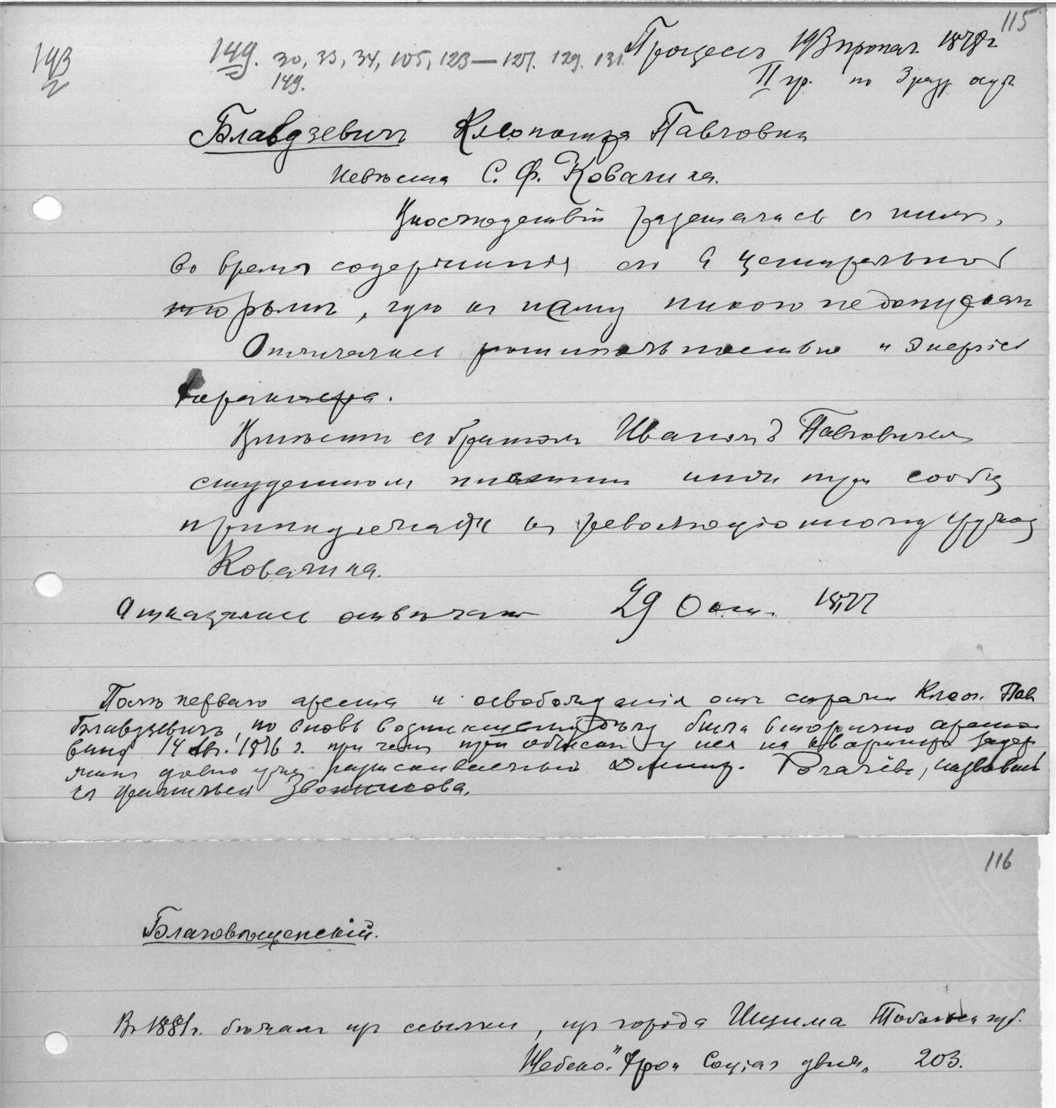 115
193
149. 30, 33, 34, 105, 123—127. 129. 131. Процессъ 193 пропаг. 1878 г
149. II гр. по 3 разр
Блавдзевичъ Клеопатра Павловна
Невѣста С. Ф. Ковалика.
Впослѣдствіи съ нимъ,
во время содержанія въ центральной
тюрьмѣ, гдѣ къ нему никого не допускали
Отличалась рѣшительностью и энергіей
характера.
Вмѣстѣ съ братомъ Иваномъ Павловичемъ
студентомъ инст инж пут сообщ
принадлежали къ революціонному кружку
Ковалика.
Отказалась отвѣчать 29 Окт. 1877
Послѣ перваго ареста и освобожденія отъ стражи Клеоп. Пав
Блавдзевичъ, по вновь возникшему дѣлу была вторично аресто
вана 14 1876 г. при чемъ при обыскѣ у нея на квартирѣ задер
жанъ давно уже разыскиваемый Дмитр. Рогачёвъ, назвавшій
ся Звонникова.
116
Благовѣщенскій.
Въ 1881 г. бѣжалъ изъ ссылки, изъ города Ишима Тобольск губ.
Шебеко. "Хрон Соціал движ. 203.